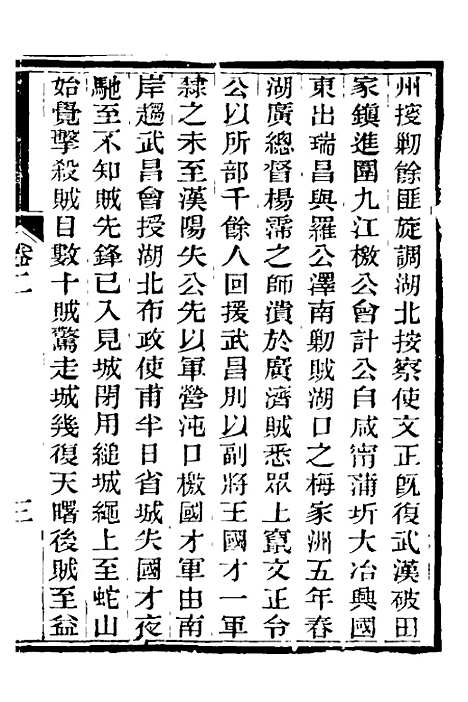 州搜剿餘匪旋調湖北按察使文正既復武漢破田
家鎮進圍九江檄公會計公自咸甯蒲圻大冶興國
東出瑞昌與羅公澤南剿賊湖口之梅家洲五年春
湖廣總督楊霈之師潰於廣濟賊悉眾上竄文正令
公以所部千餘人回援武昌別以副將王國才一軍
隸之未至漢陽失公先以軍營沌口檄國才軍由南
岸趨武昌會授湖北布政使甫半日省城失國才夜
馳至不知賊先鋒已入見城閉用縋城繩上至蛇山
始覺擊殺賊目數十賊驚走城幾復天曙後賊至益
卷二
三